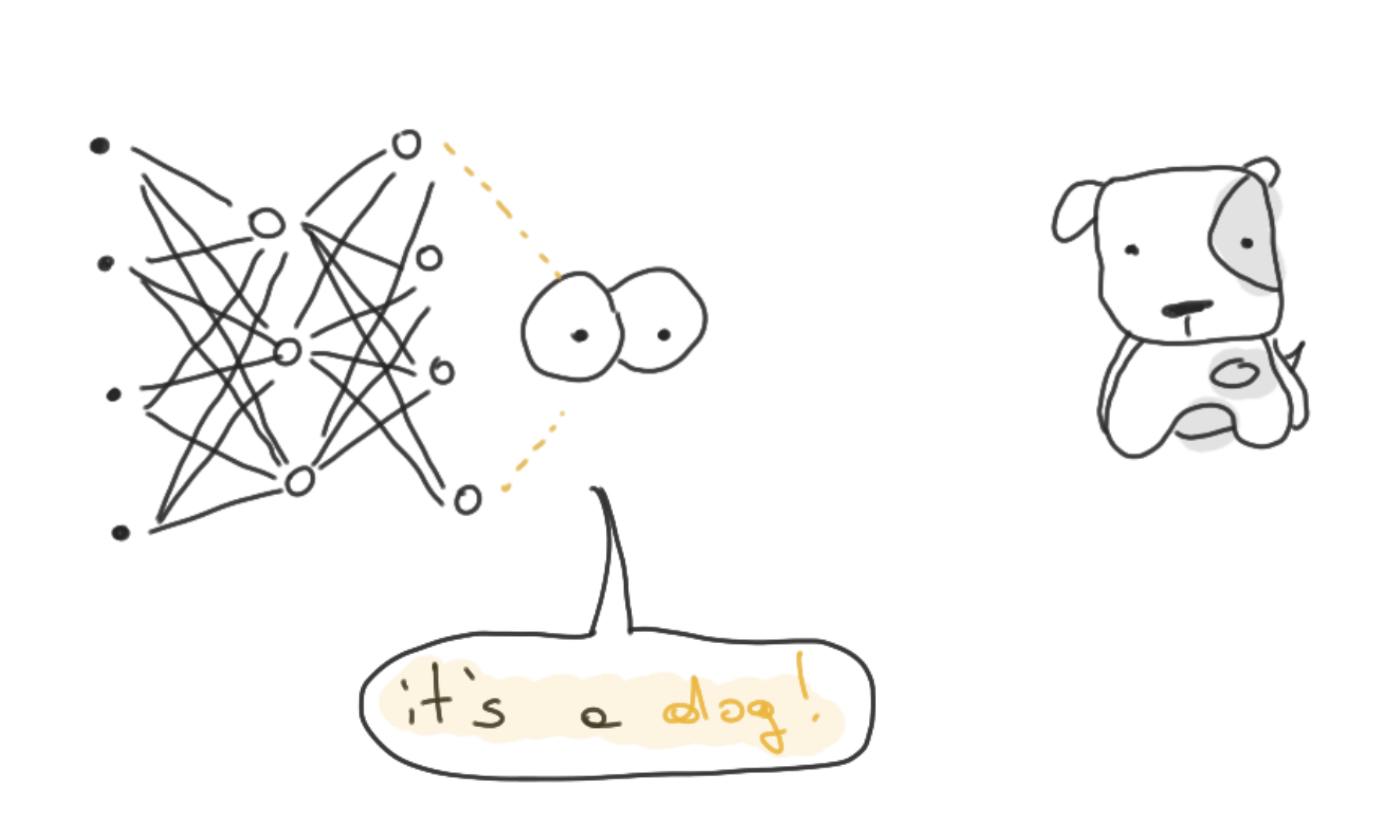 it's a dog!